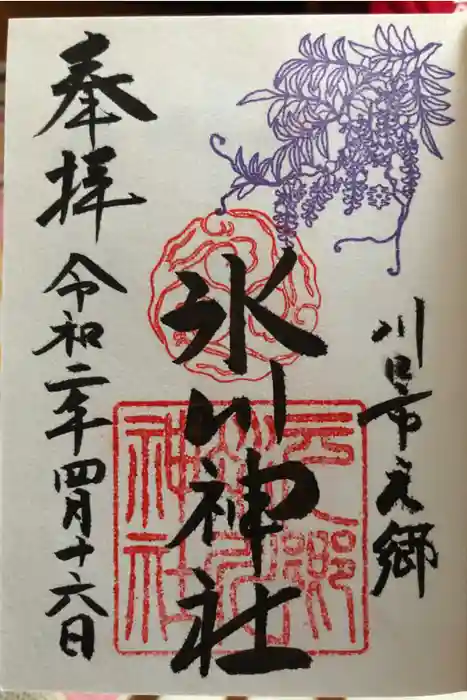 川口市元郷
氷川神社
奉拝
令和二年四月十六日
元郷
神社